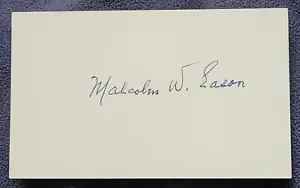 Malcolm W. Eason